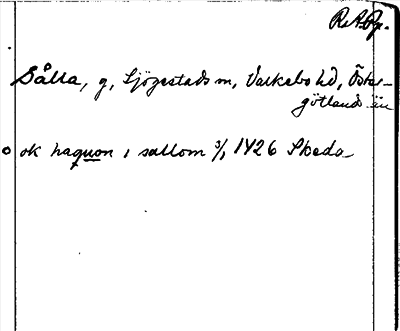 R.A.Pp.
Sålla, g, Sjögestads sn, Valkebo hd, Öster-
götlands län
ok haquon i sallom 3/1 1426 Skeda